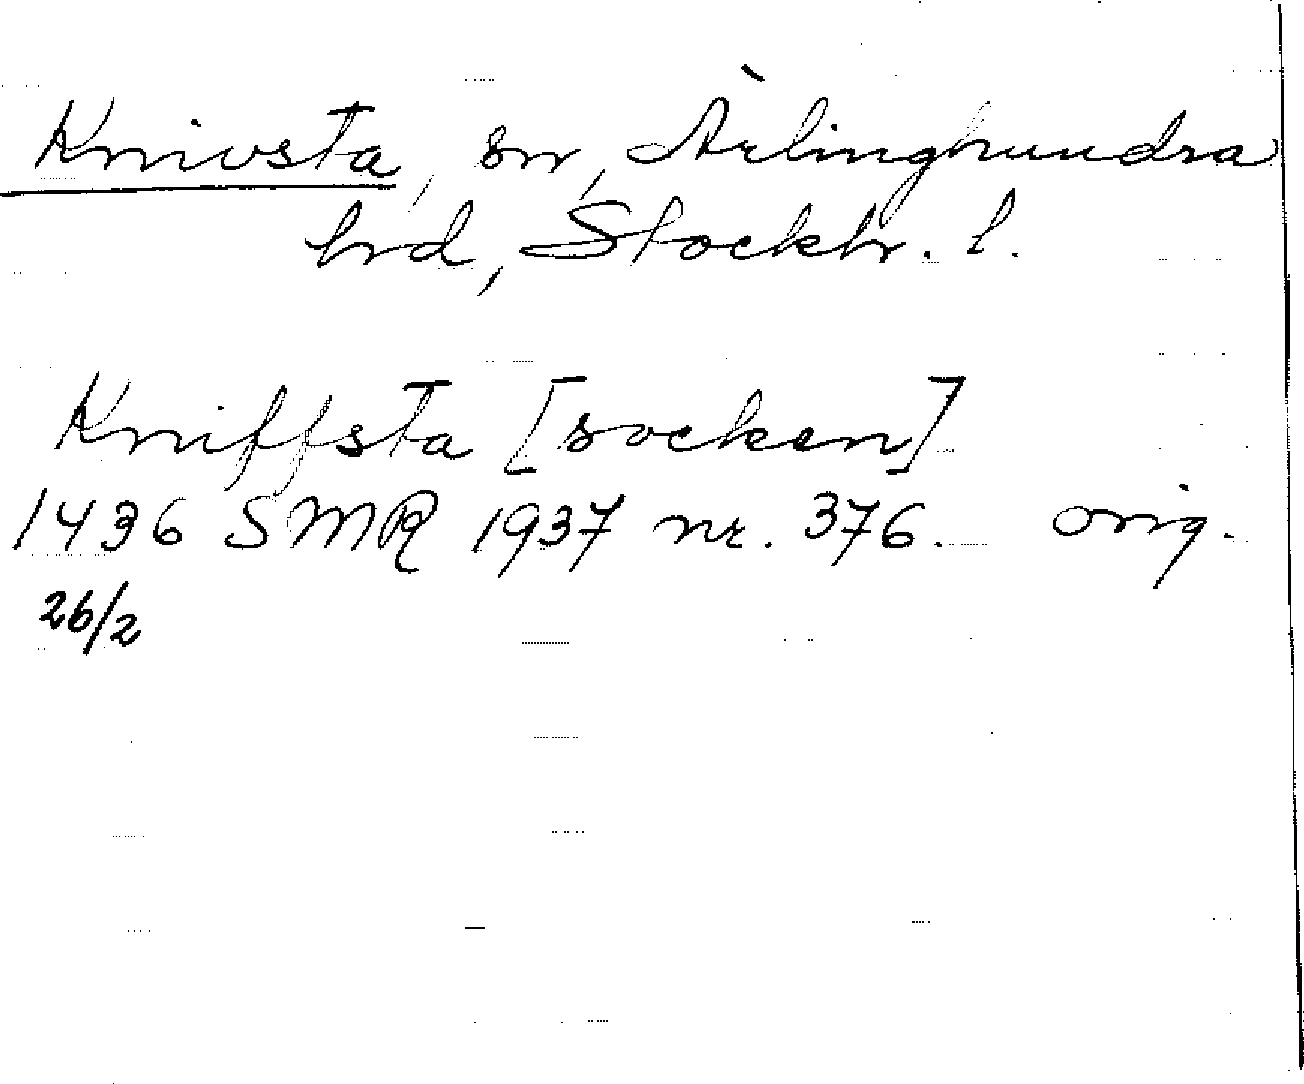 Knivsta, sn, Ärlinghundra
hrd, Stockh. l.
Kniffsta [socken]
1436 SMR 1937 nr. 376. orig.
26/2